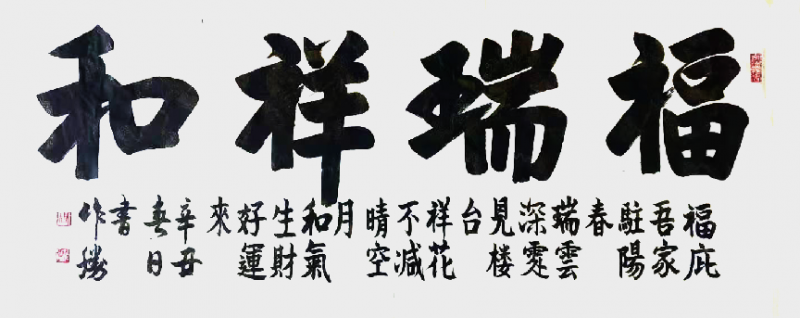 福瑞祥和
福庇
吾家
駐陽
春
瑞雲
深處
見楼
台
祥花
不減
晴空
月
和氣
生財
好運
來
辛丑
春日
書
作勝